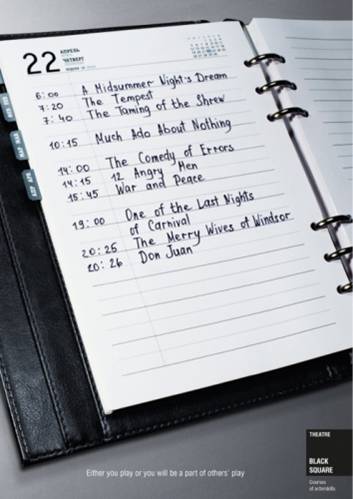 22
АПРЕЛЬ
ЧЕТВЕРГ
6:00 A Midsummer Night's Dream
7:20 The Tempest
7:40 The Taming of the Shrew
10:15 Much Ado About Nothing
14:00 The Comedy of Errors
14:15 12 Angry Men
15:45 War and Peace
19:00 One of the Last Nights
of Carnival
20:25 The Merry Wives of Windsor
20:26 Don Juan
Either you play or you will be a part of others' play
THEATRE
BLACK
SQUARE
Courses
of actorskills